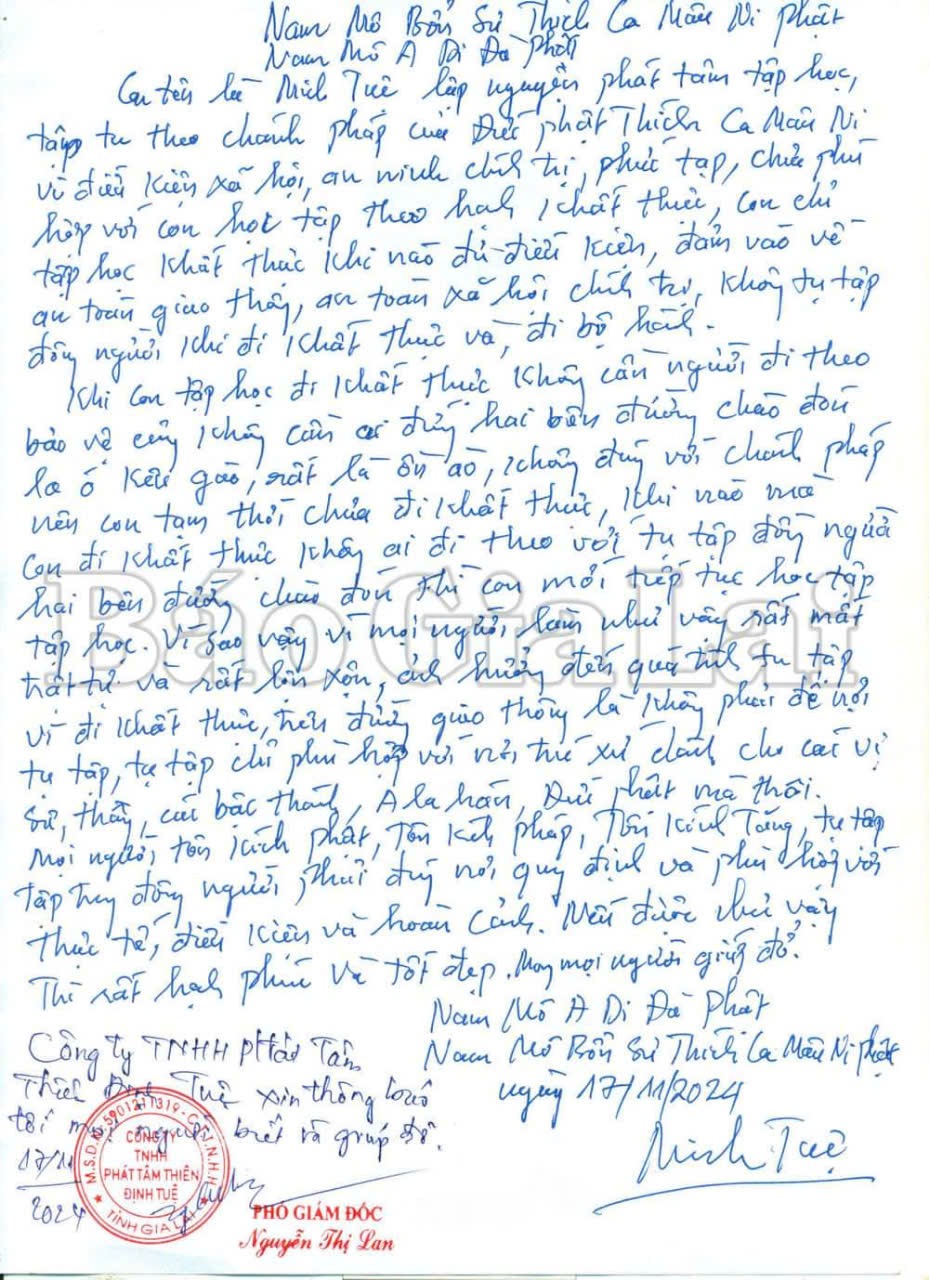 Nam Mô Bổn Sư Thích Ca Mâu Ni Phật
Nam Mô A Di Đà Phật
Con tên là Minh Tuệ lập nguyện phát tâm tập học,
tập tu theo chánh pháp của Đức phật Thích Ca Mâu Ni
vì điều kiện xã hội, an ninh chính trị, phức tạp, chưa phù
hợp với con học tập theo hạnh khất thực, con chỉ
tập học khất thực khi nào đủ điều kiện, đảm vảo về
an toàn giao thông, an toàn xã hội chính trị, không tụ tập
đông người khi đi khất thực và, đi bộ hành.
Khi con tập học đi khất thực không cần người đi theo
bảo vệ cũng không cần ai đứng hai bên đường chào đón
la ó kêu gào, rất là ồn ào, không đúng với chánh pháp
nên con tạm thời chưa đi khất thực, khi nào mà
con đi khất thực không ai đi theo với tụ tập đông người
hai bên đường chào đón thì con mới tiếp tục học tập
tập học. Vì sao vậy vì mọi người làm như vậy rất mất
trật tự và rất lộn xộn, ảnh hưởng đến quá trình tu tập
vì đi khất thực, trên đường giao thông là không phải để nơi
tụ tập, tụ tập chỉ phù hợp với nơi trú xứ dành cho các vị
sư, thầy, các bậc thánh, A la hán, Đức phật mà thôi.
Mọi người tôn kính phật, Tôn kính pháp, Tôn kính Tăng, tụ tập
tập trung đông người phải đúng nơi quy định và phù hợp với
thực tế, điều kiện và hoàn cảnh. Nếu được như vậy
Thì rất hạnh phúc và tốt đẹp. Mong mọi người giúp đỡ.
Nam Mô A Di Đà Phật
Nam Mô Bổn Sư Thích Ca Mâu Ni phật
ngày 17/11/2024
Minh Tuệ
Công ty TNHH phát Tâm
Thiền Định Tuệ xin thông báo
tới mọi người biết và giúp đỡ.
17/11
2024
M.S.D.N: 5901211319 - C.T.T.N.H.H
CÔNG TY
TNHH
PHÁT TÂM THIỀN
ĐỊNH TUỆ
TỈNH GIA LAI
PHÓ GIÁM ĐỐC
Nguyễn Thị Lan
Báo Gia Lai